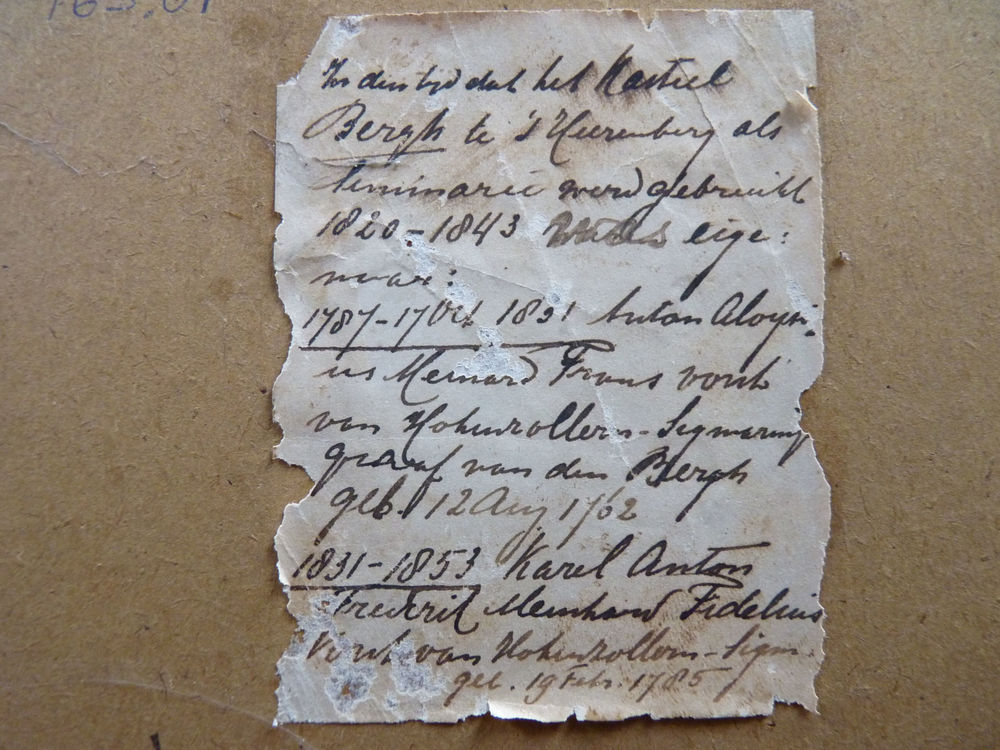 163.01
In den tijd dat het Kasteel
Bergh te 's Heerenberg als
Seminarie werd gebruikt
1820-1843 eige:
naar:
1787-17 Oct 1831 Anton Aloysi-
us Meinard Frans vorst
van Hohenzollern-Sigmaring
graaf van den Bergh
geb. 12 Aug 1762
1831-1853 Karel Anton
Frederik Meinhard Fidelius
Vorst van Hohenzollern-Sigm.
geb. 19 Febr. 1785